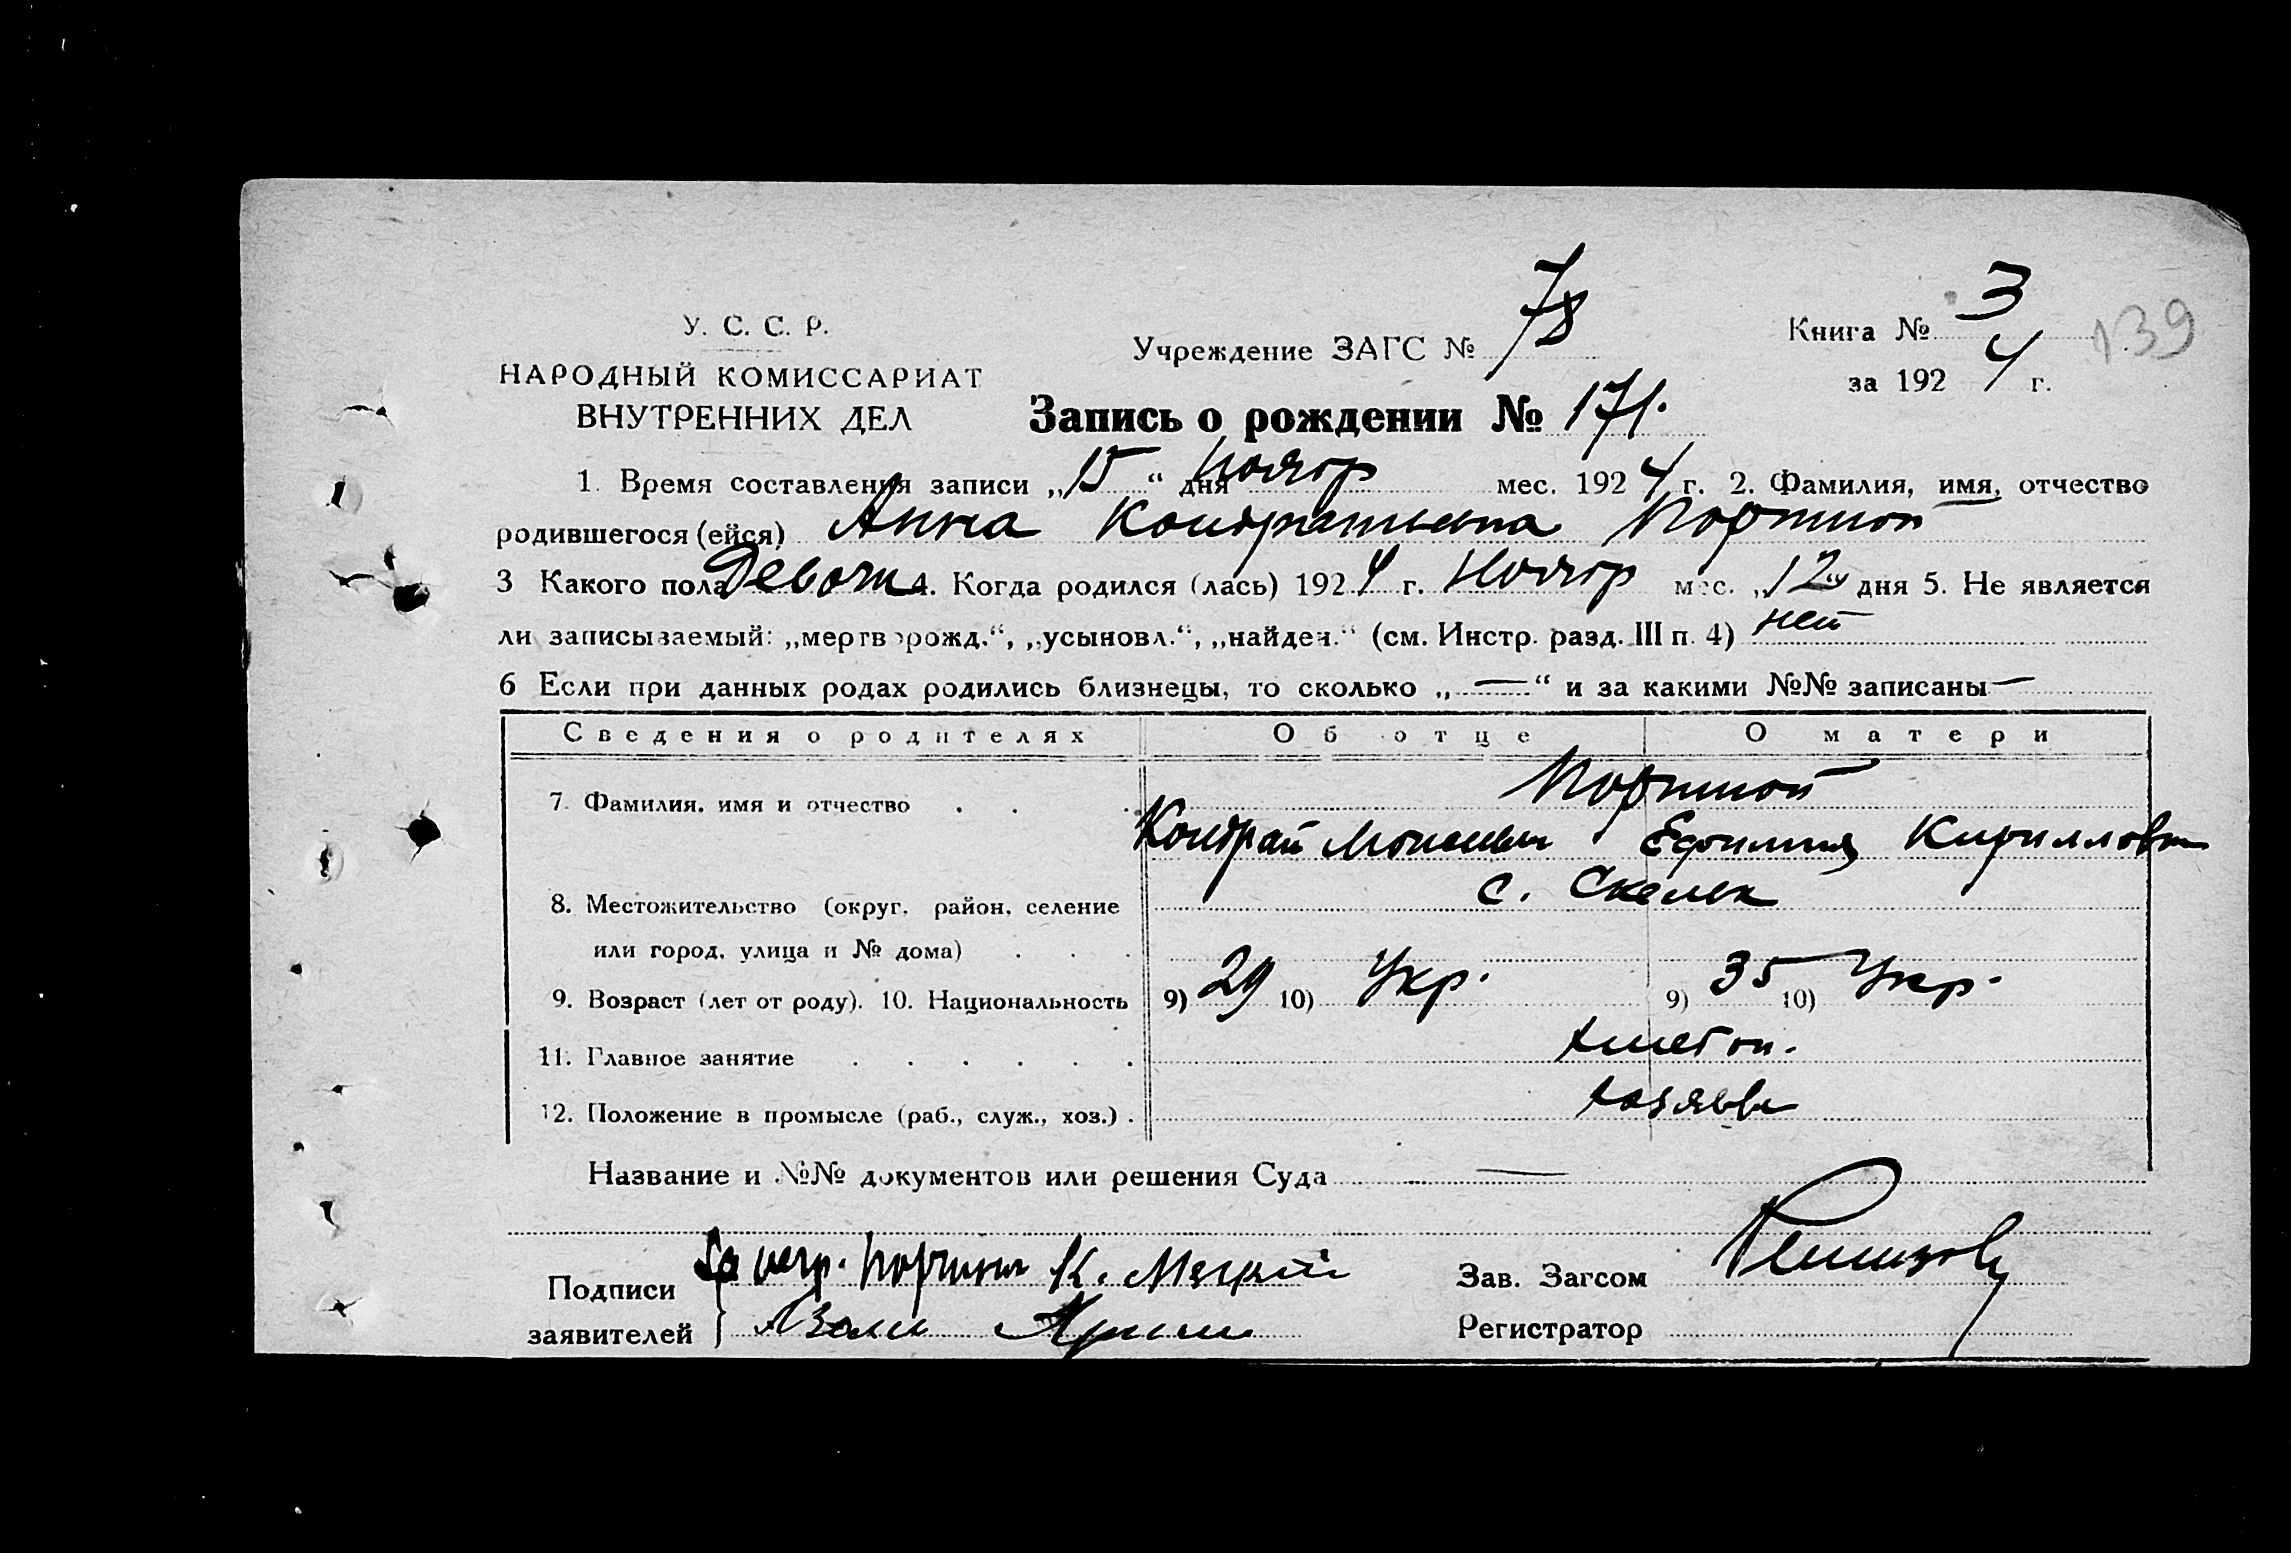 У. С. С. Р.
НАРОДНЫЙ КОМИССАРИАТ
ВНУТРЕННИХ ДЕЛ
Учреждение ЗАГС № 78
Книга № 3
139
за 192 4 г.
Запись о рождении № 171.
1. Время составления записи „15“ дня Ноябр мес. 192 4 г. 2. Фамилия, имя, отчество
родившегося (ейся) Анна Кондратьевна Портной
3 Какого пола Девочк 4. Когда родился (лась) 192 4 г. Ноябр мес. „12“ дня 5. Не является
ли записываемый: „мертворожд.“, „усыновл.“, „найден.“ (см. Инстр. разд. III п. 4) нет
6 Если при данных родах родились близнецы, то сколько „—“ и за какими №№ записаны —
Сведения о родителях Об отце О матери
7. Фамилия, имя и отчество . . . Портной
Кондрат Ефимия Кирилловн
8. Местожительство (округ, район, селение с. Скелек
или город, улица и № дома) . . .
9. Возраст (лет от роду). 10. Национальность 9) 29 10) Укр. 9) 35 10) Укр.
11. Главное занятие . . . . . .
12. Положение в промысле (раб., служ., хоз.) . хозяева
Название и №№ документов или решения Суда —
Подписи К.
заявителей
Зав. Загсом
Регистратор